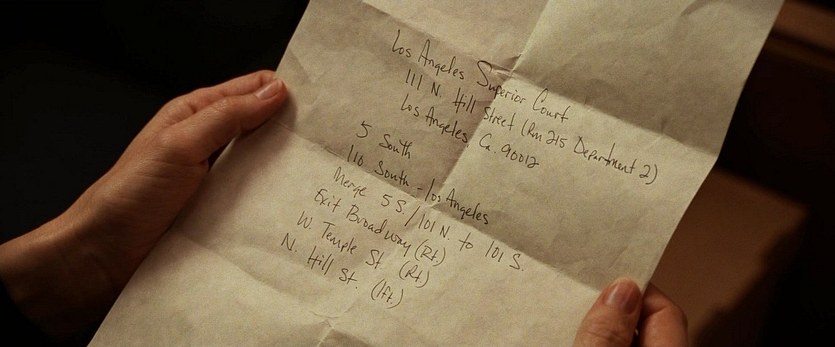 Los Angeles Superior Court
111 N. Hill Street (Rm 215 Department 2)
Los Angeles, Ca. 90012
5 South
110 South - Los Angeles
Merge 5 S. / 101 N. to 101 S.
Exit Broadway (Rt.)
W. Temple St. (Rt.)
N. Hill St. (lft.)